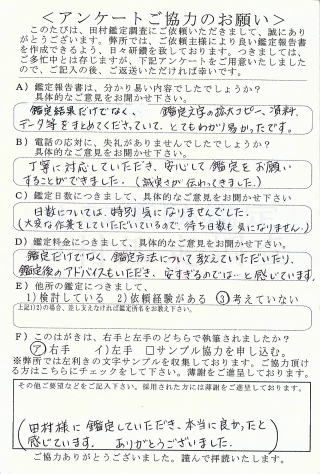 ＜アンケートご協力のお願い＞
このたびは、田村鑑定調査にご依頼いただきまして、誠にあり
がとうございます。弊所では、ご依頼主様により良い鑑定報告書
を作成できるよう、日々研鑚を致しております。つきましては、
ご多忙中とは存じますが、下記アンケートをご用意いたしました
ので、ご記入の後、ご返送いただければ幸いです。
A）鑑定報告書は、分かり易い内容でしたでしょうか？
具体的なご意見をお聞かせ下さい。
鑑定結果だけでなく、 鑑定文字の拡大コピー、資料、
データ等をまとめてくださっていて、とてもわかり易かったです。
B）電話の応対に、失礼がありませんでしたでしょうか？
具体的なご意見をお聞かせ下さい。
丁寧に対応していただき、安心して鑑定をお願い
することができました。（誠実さが伝わってきました。）
C）鑑定日数につきまして、具体的なご意見をお聞かせ下さい。
日数については、特別 気になりませんでした。
（大変な作業をしていただいているので、待ち日数も気になりません。）
D）鑑定料金につきまして、具体的なご意見をお聞かせ下さい。
鑑定だけでなく、鑑定方法について教えていただいたり、
鑑定後のアドバイスもいただき、安すぎるのでは…と感じています。
E）他所の鑑定につきまして、
1)検討している 2)依頼経験がある ③考えていない
上記1)2)の場合、差し支えなければ鑑定所名をお教え下さい。
F）このはがきは、右手と左手のどちらで執筆されましたか？
㋐右手 イ)左手 □サンプル協力を申し込む。
※弊所では左利きの文字サンプルを収集しております。ご協力頂け
る方はこちらにチェックをして下さい。薄謝をご進呈しております。
その他ご要望などをご記入下さい。採用された方には薄謝をご進呈しております。
（田村様に鑑定していただき、本当に良かったと
感じています。 ありがとうございました。）
ご協力ありがとうございました。謹んで拝読いたします。